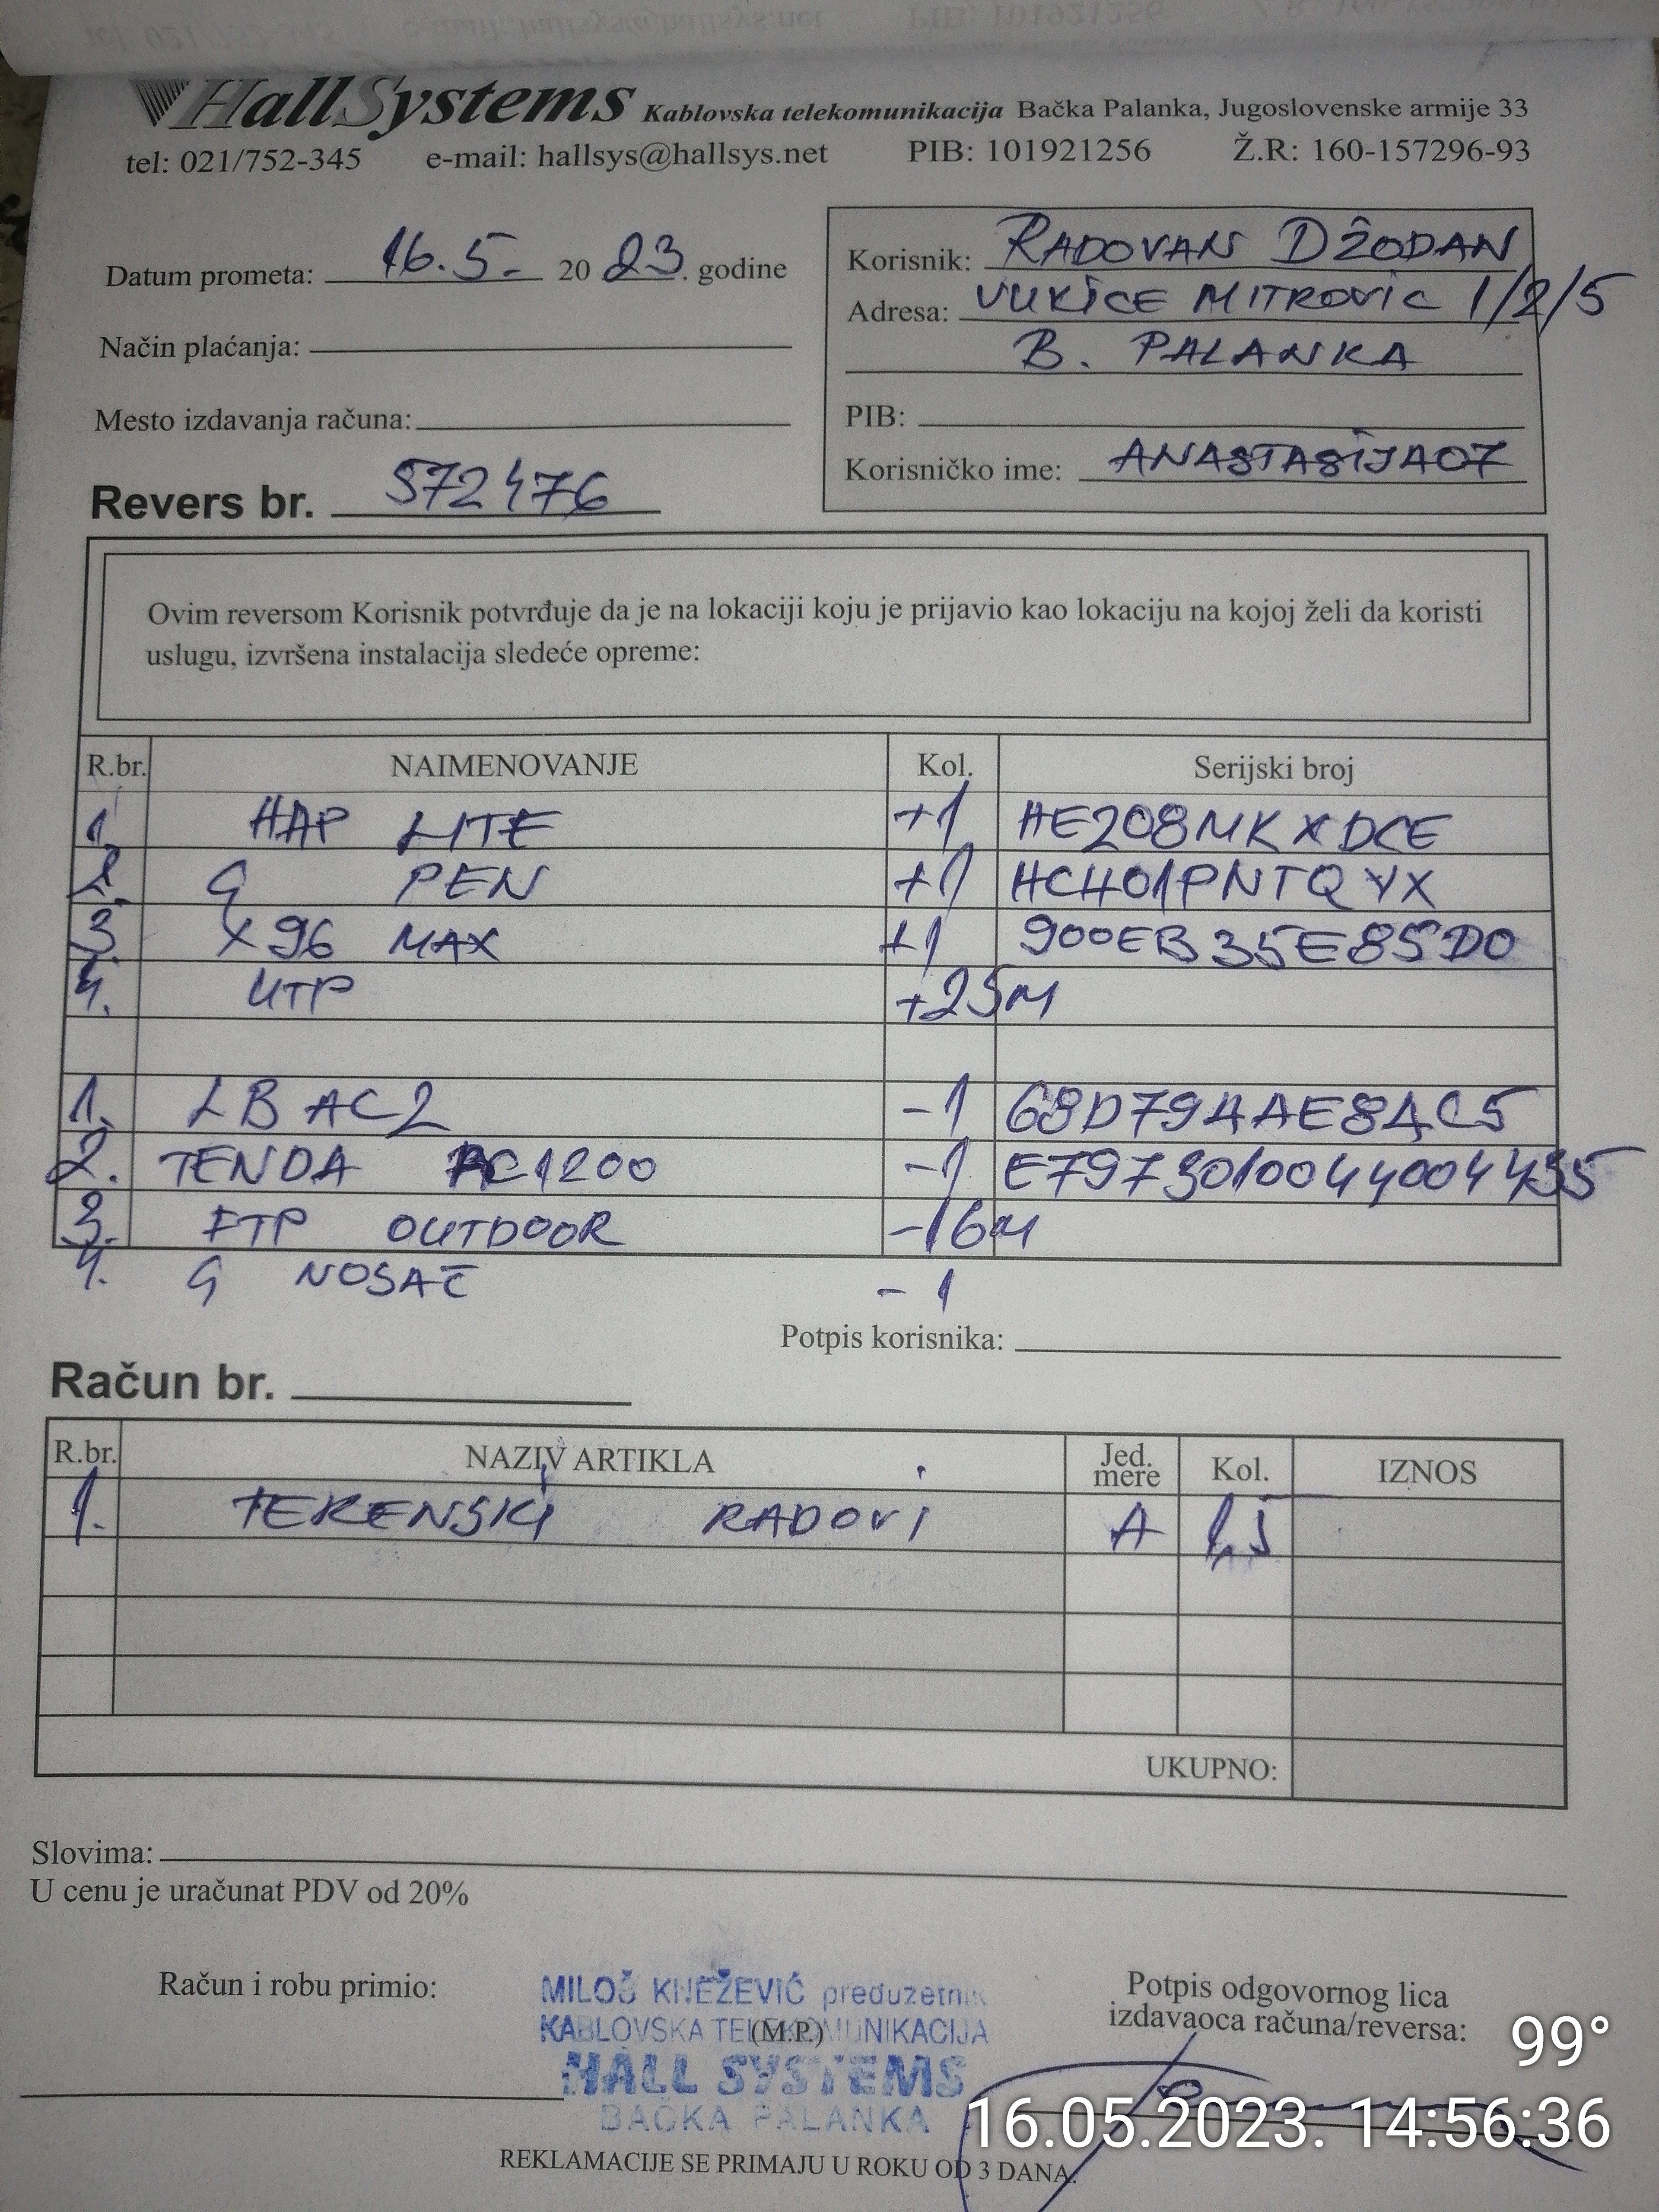 HallSystems Kablovska telekomunikacija Bačka Palanka, Jugoslovenske armije 33
tel: 021/752-345 e-mail: hallsys@hallsys.net PIB: 101921256 Ž.R: 160-157296-93
Datum prometa: 16.5. 2023. godine
Način plaćanja:
Mesto izdavanja računa:
Revers br. 572476
Korisnik: RADOVAN DŽODAN
Adresa: VUKICE MITROVIC 1/2/5
B. PALANKA
PIB:
Korisničko ime: ANASTASIJA07
Ovim reversom Korisnik potvrđuje da je na lokaciji koju je prijavio kao lokaciju na kojoj želi da koristi
uslugu, izvršena instalacija sledeće opreme:
R.br. NAIMENOVANJE Kol. Serijski broj
1. HAP LITE +1 HE208MKXDCE
2. G PEN +1 HCH01PNTQYX
3. X96 MAX +1 900EB35E85D0
4. UTP +25M
1. LB AC2 -1 68D79AAE8AC5
2. TENDA AC1200 -1
3. FTP OUTDOOR -16M
4. G NOSAČ -1
Potpis korisnika:
Račun br.
R.br. NAZIV ARTIKLA Jed. mere Kol. IZNOS
1. TERENSKI RADOVI A 1,5
UKUPNO:
Slovima:
U cenu je uračunat PDV od 20%
Račun i robu primio:
MILOŠ KNEŽEVIĆ preduzetnik
KABLOVSKA TELEKOMUNIKACIJA
(M.P.)
HALL SYSTEMS
BAČKA PALANKA
Potpis odgovornog lica
izdavaoca računa/reversa:
REKLAMACIJE SE PRIMAJU U ROKU OD 3 DANA.
99°
16.05.2023. 14:56:36